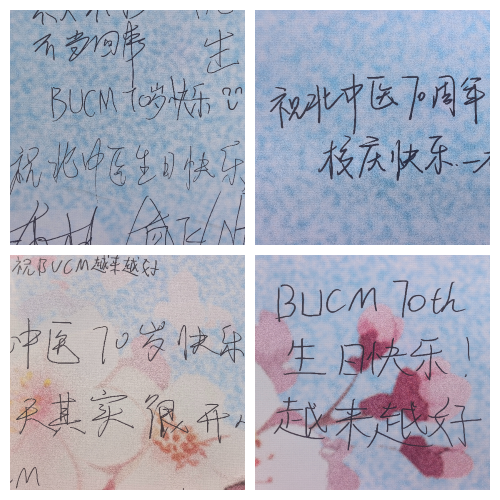 不当回事
生
BUCM 70岁快乐
祝北中医生日快乐
祝北中医70周年
校庆快乐
祝BUCM越来越好
中医70岁快乐
天其实很开
M
BUCM 70th
生日快乐！
越来越好